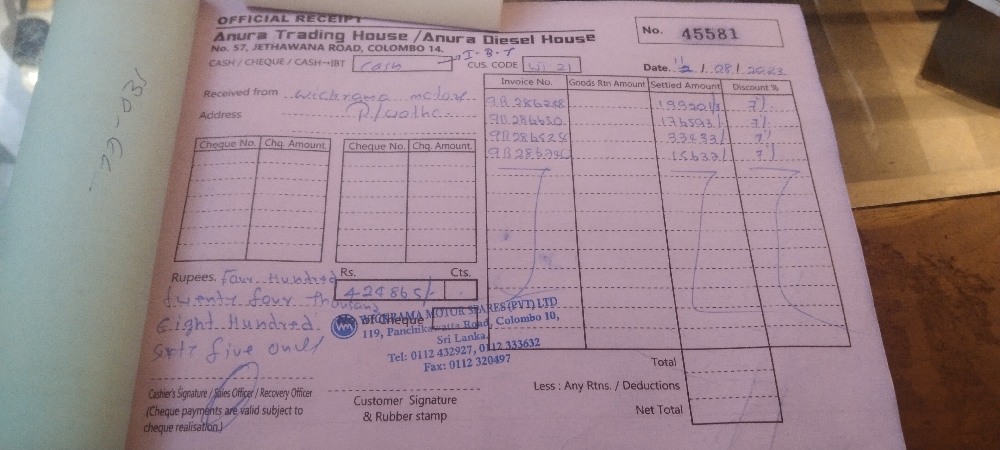 OFFICIAL RECEIPT
Anura Trading House / Anura Diesel House
No. 57, JETHAWANA ROAD, COLOMBO 14.
No. 45581
I-B-T
CASH / CHEQUE / CASH→IBT Cash CUS. CODE
Date. / 08 / 2023
Received from Wickrama motors
Address P/watha
Invoice No. Goods Rtn Amount Settled Amount Discount %
7%
7%
7%
7%
Cheque No. Chq. Amount Cheque No. Chq. Amount.
Rupees. Four Hundred
twenty four thousand
Eight Hundred
sixty five only
Rs. Cts.
424865/-
No of Cheque
WICKRAMA MOTOR SPARES (PVT) LTD
119, Panchikawatta Road, Colombo 10,
Sri Lanka.
Tel: 0112 432927, 0112 333632
Fax: 0112 320497
Total
Less : Any Rtns. / Deductions
Net Total
Cashier's Signature / Sales Officer / Recovery Officer
(Cheque payments are valid subject to
cheque realisation.)
Customer Signature
& Rubber stamp